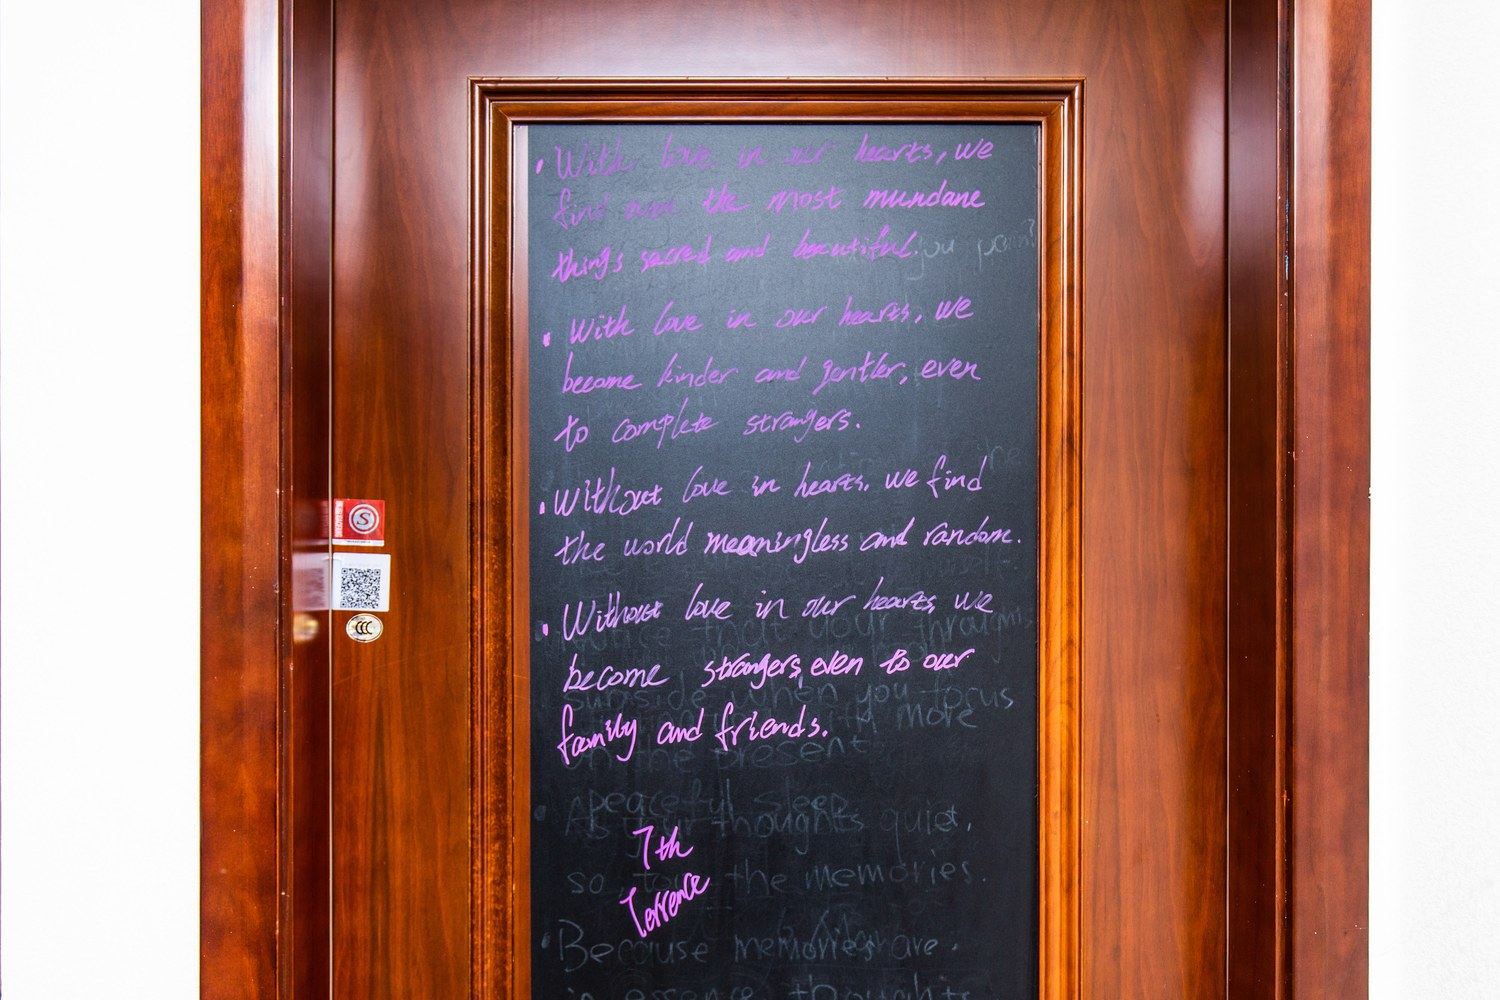 • With love in our hearts, we
find even the most mundane
things sacred and beautiful.
you
• With love in our hearts, we
become kinder and gentler, even
to complete strangers.
• Without love in hearts, we find
the world meaningless and random.
• Without love in our hearts, we
that your
become strangers, even to our
when you focus
with more
family and friends.
on the present
peaceful sleep
• As your thoughts quiet,
7th
so, too, the memories.
Terrence
• Because memories are,
in essence thoughts
S
CCC